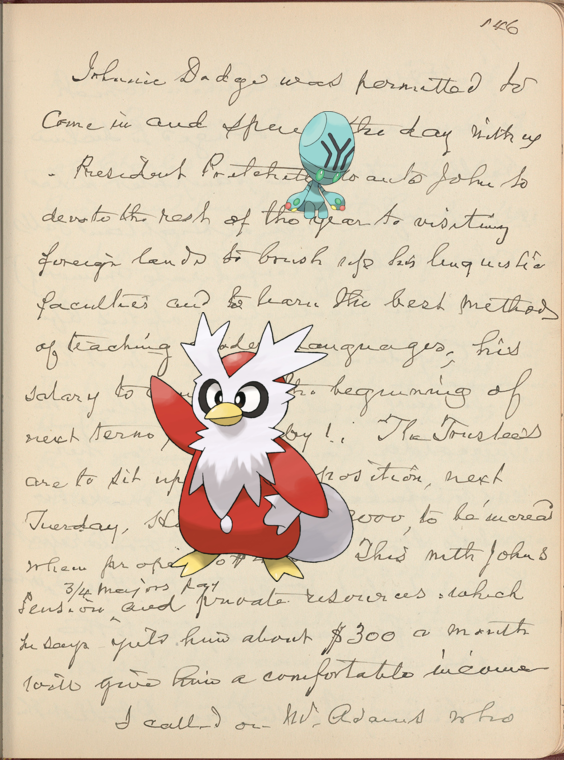 146
Johnnie Dodge was permitted to
Come in and spend the day with us
- President Pritchett wants John to
devote the rest of the year to visiting
foreign lands to brush up his linguistic
faculties and to learn the best methods
of teaching languages, his
salary to the beginning of
next term, by ! . The Trustees
are to sit up position, next
Tuesday, 000, to be increased
when This with John's
3/4 Majors pay
Pension and private resources which
he says yields him about $300 a month
will give him a comfortable income
I called on Mr. Adams who